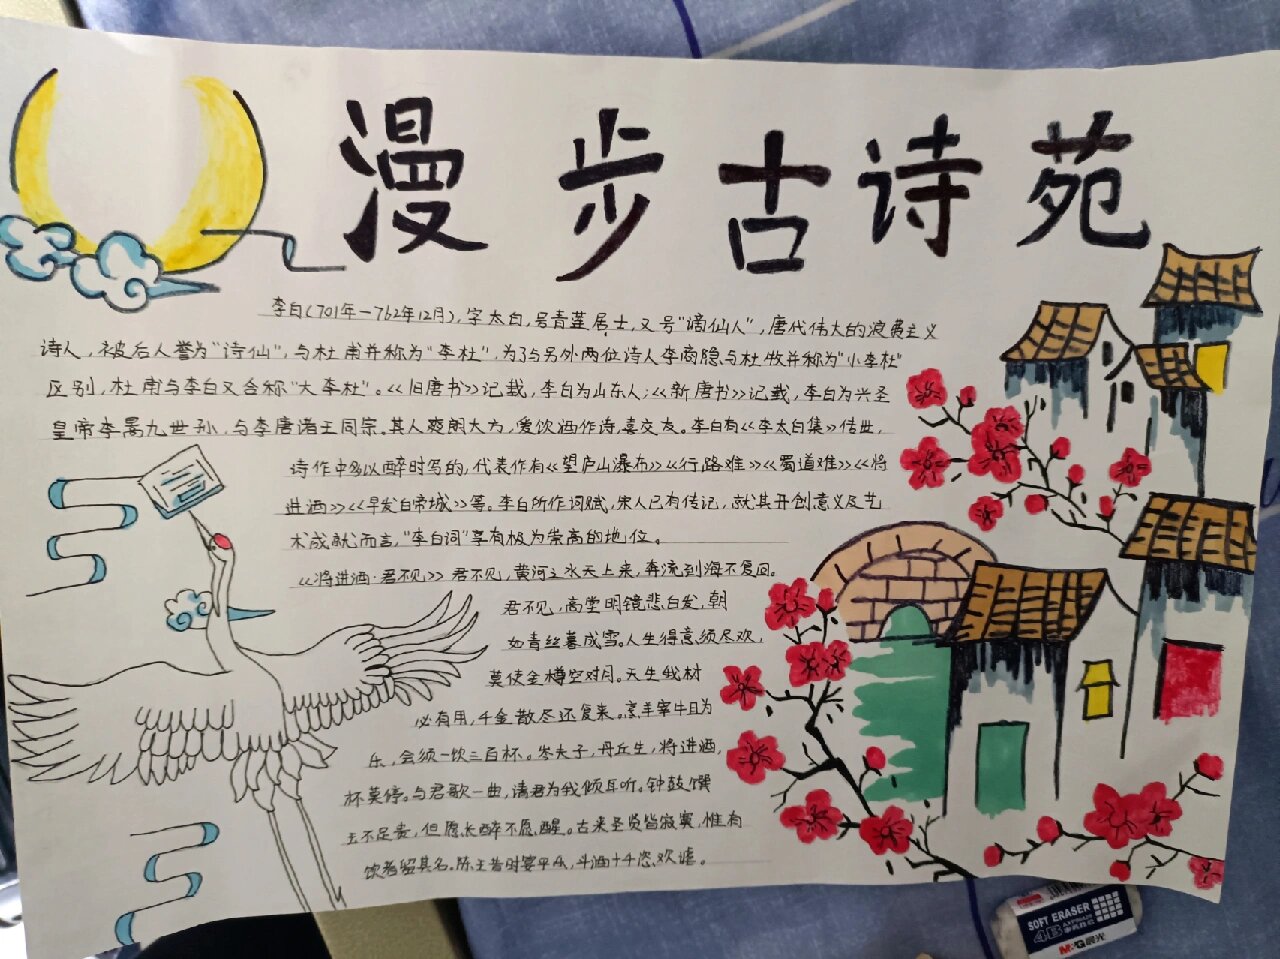 漫步古诗苑
李白(701年—762年12月),字太白,号青莲居士,又号"谪仙人",唐代伟大的浪漫主义
诗人,被后人誉为"诗仙",与杜甫并称为"李杜",为了与另外两位诗人李商隐与杜牧并称为"小李杜"
区别,杜甫与李白又合称"大李杜"。《旧唐书》记载,李白为山东人;《新唐书》记载,李白为兴圣
皇帝李暠九世孙,与李唐诸王同宗。其人爽朗大方,爱饮酒作诗,喜交友。李白有《李太白集》传世,
诗作中多以醉时写的,代表作有《望庐山瀑布》《行路难》《蜀道难》《将
进酒》《早发白帝城》等。李白所作词赋,宋人已有传记,就其开创意义及艺
术成就而言,"李白词"享有极为崇高的地位。
《将进酒·君不见》君不见,黄河之水天上来,奔流到海不复回。
君不见,高堂明镜悲白发,朝
如青丝暮成雪。人生得意须尽欢,
莫使金樽空对月。天生我材
必有用,千金散尽还复来。烹羊宰牛且为
乐,会须一饮三百杯。岑夫子,丹丘生,将进酒,
杯莫停。与君歌一曲,请君为我倾耳听。钟鼓馔
玉不足贵,但愿长醉不愿醒。古来圣贤皆寂寞,惟有
饮者留其名。陈王昔时宴平乐,斗酒十千恣欢谑。
SOFT ERASER
4B
M&G晨光